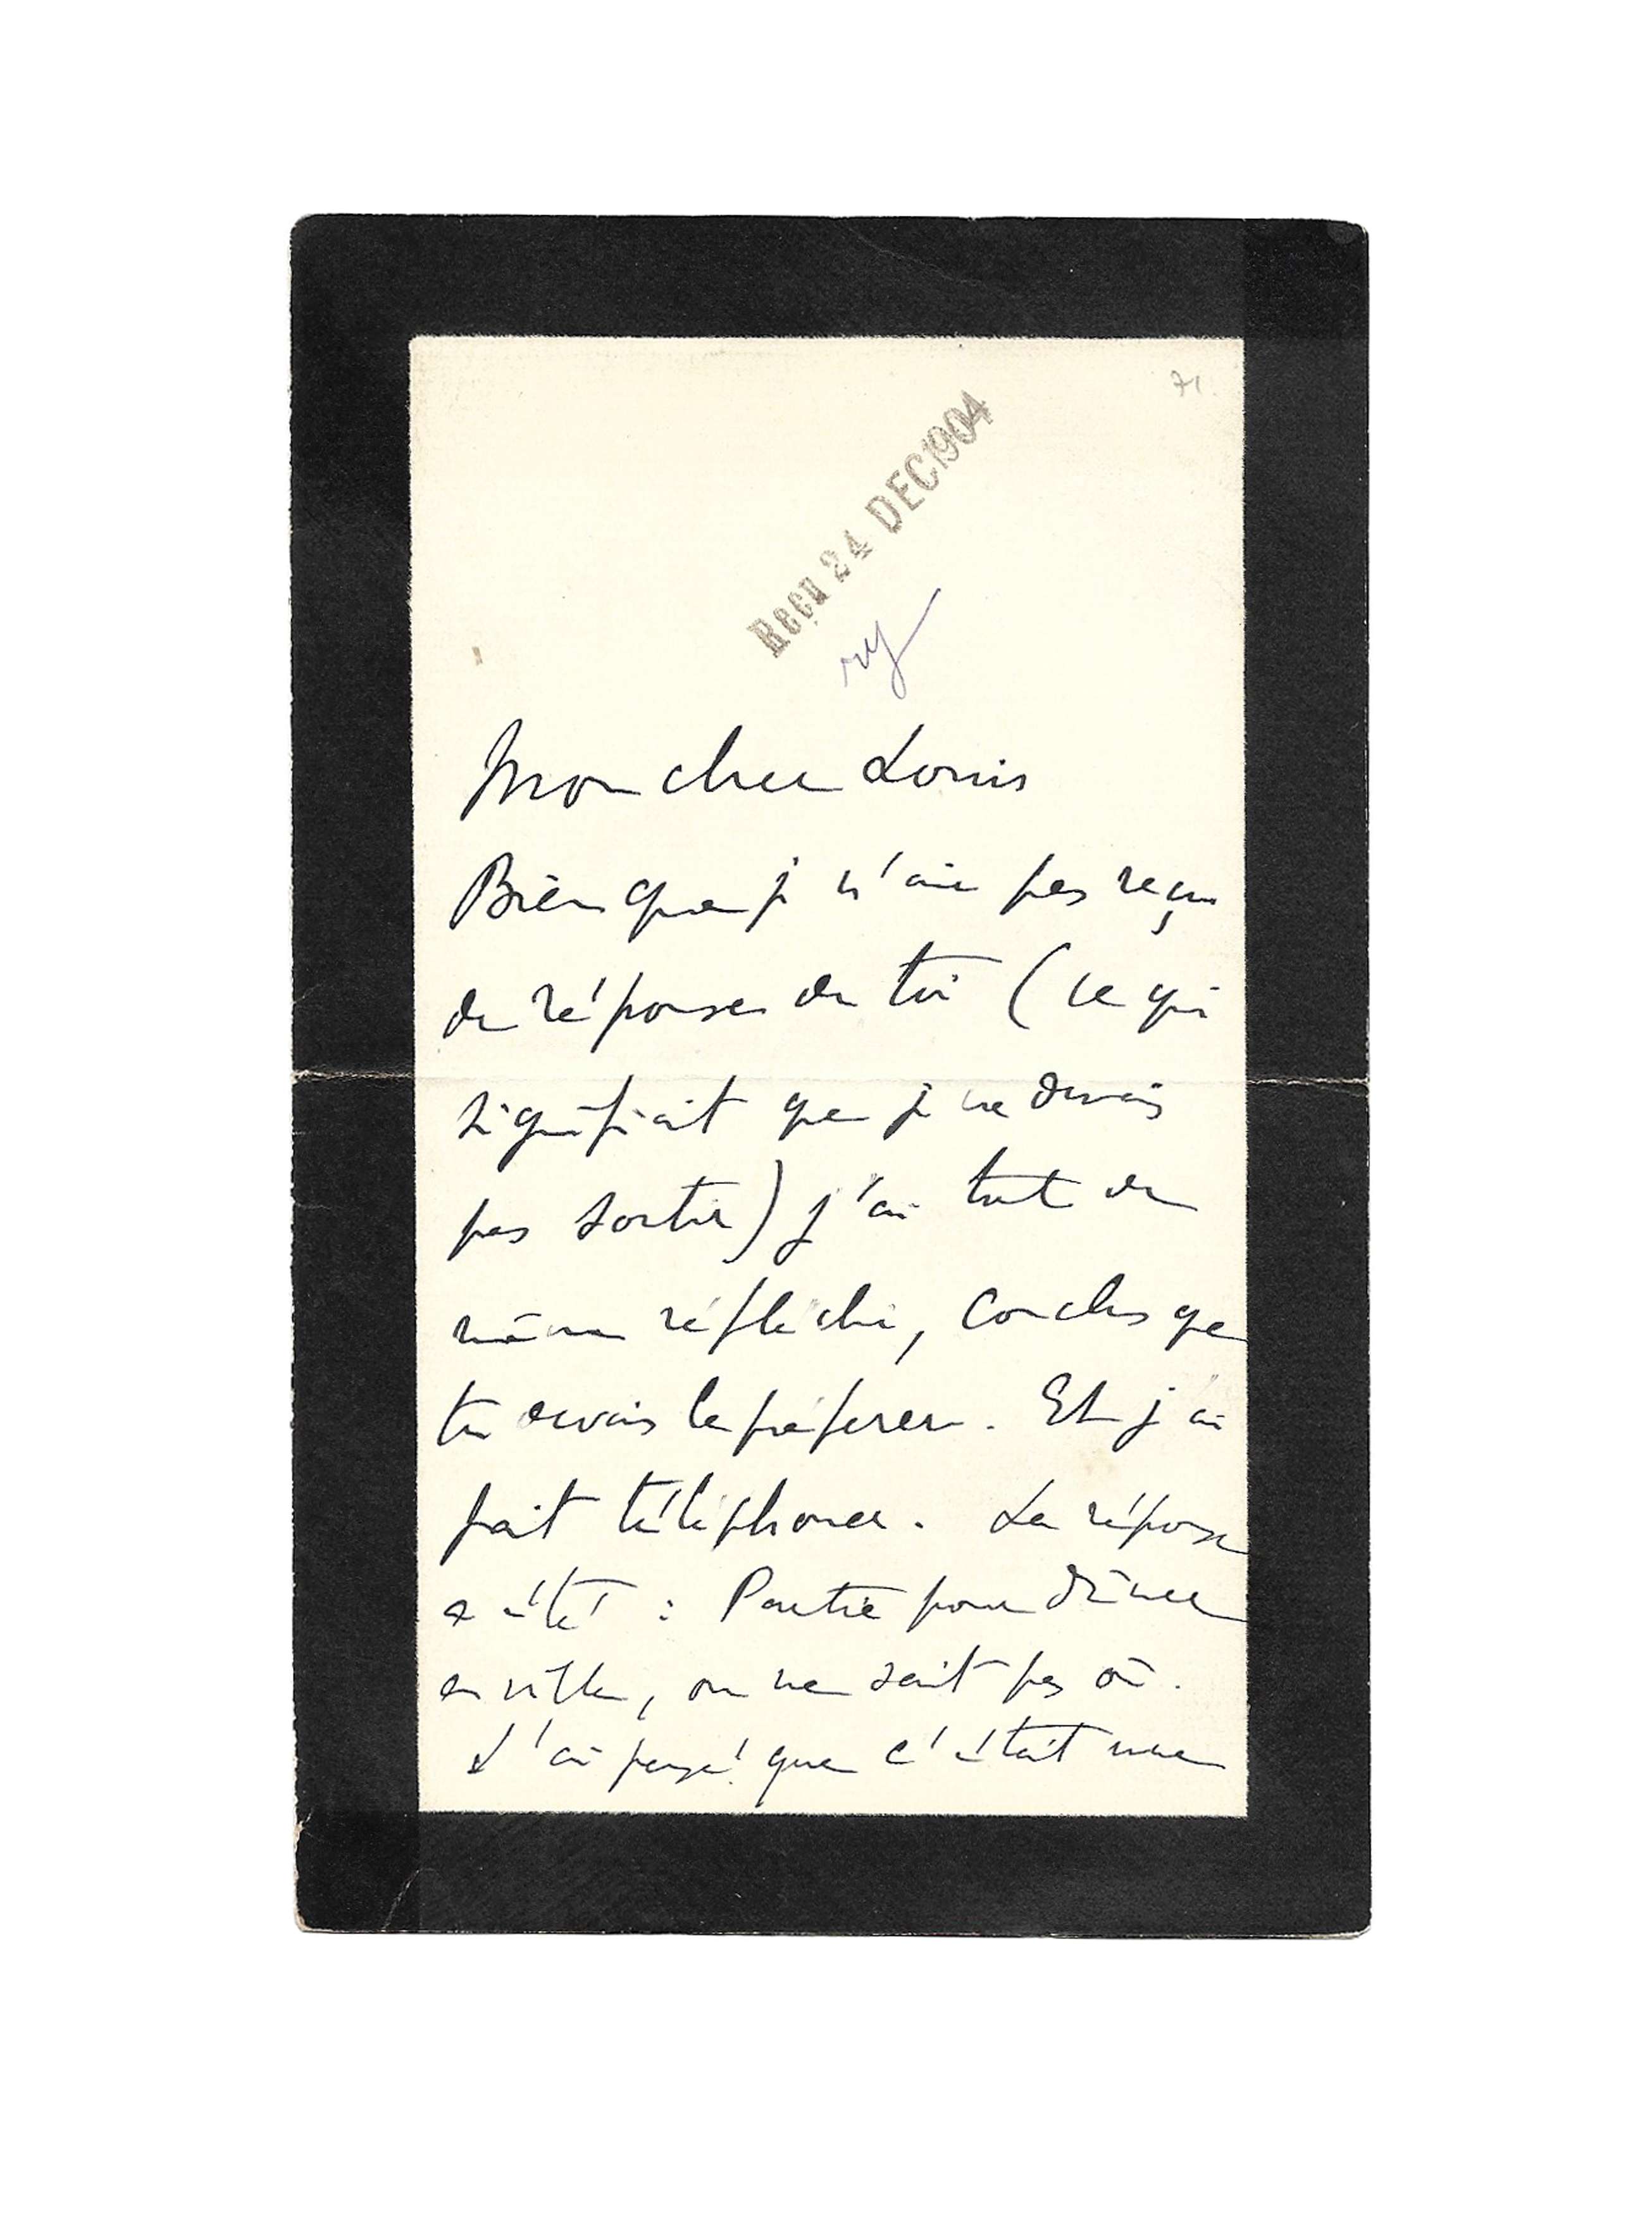 71.
Reçu 24 DEC 1904
Mon cher Louis
Bien que je n'aie pas reçu
de réponse de toi (ce qui
signifiait que je ne devais
pas sortir) j'ai tout de
même réfléchi, conclus que
tu devais le préférer. Et j'ai
fait téléphoner. La réponse
a été : Partie pour dîner
en ville, on ne sait pas où.
J'ai pensé que c'était une